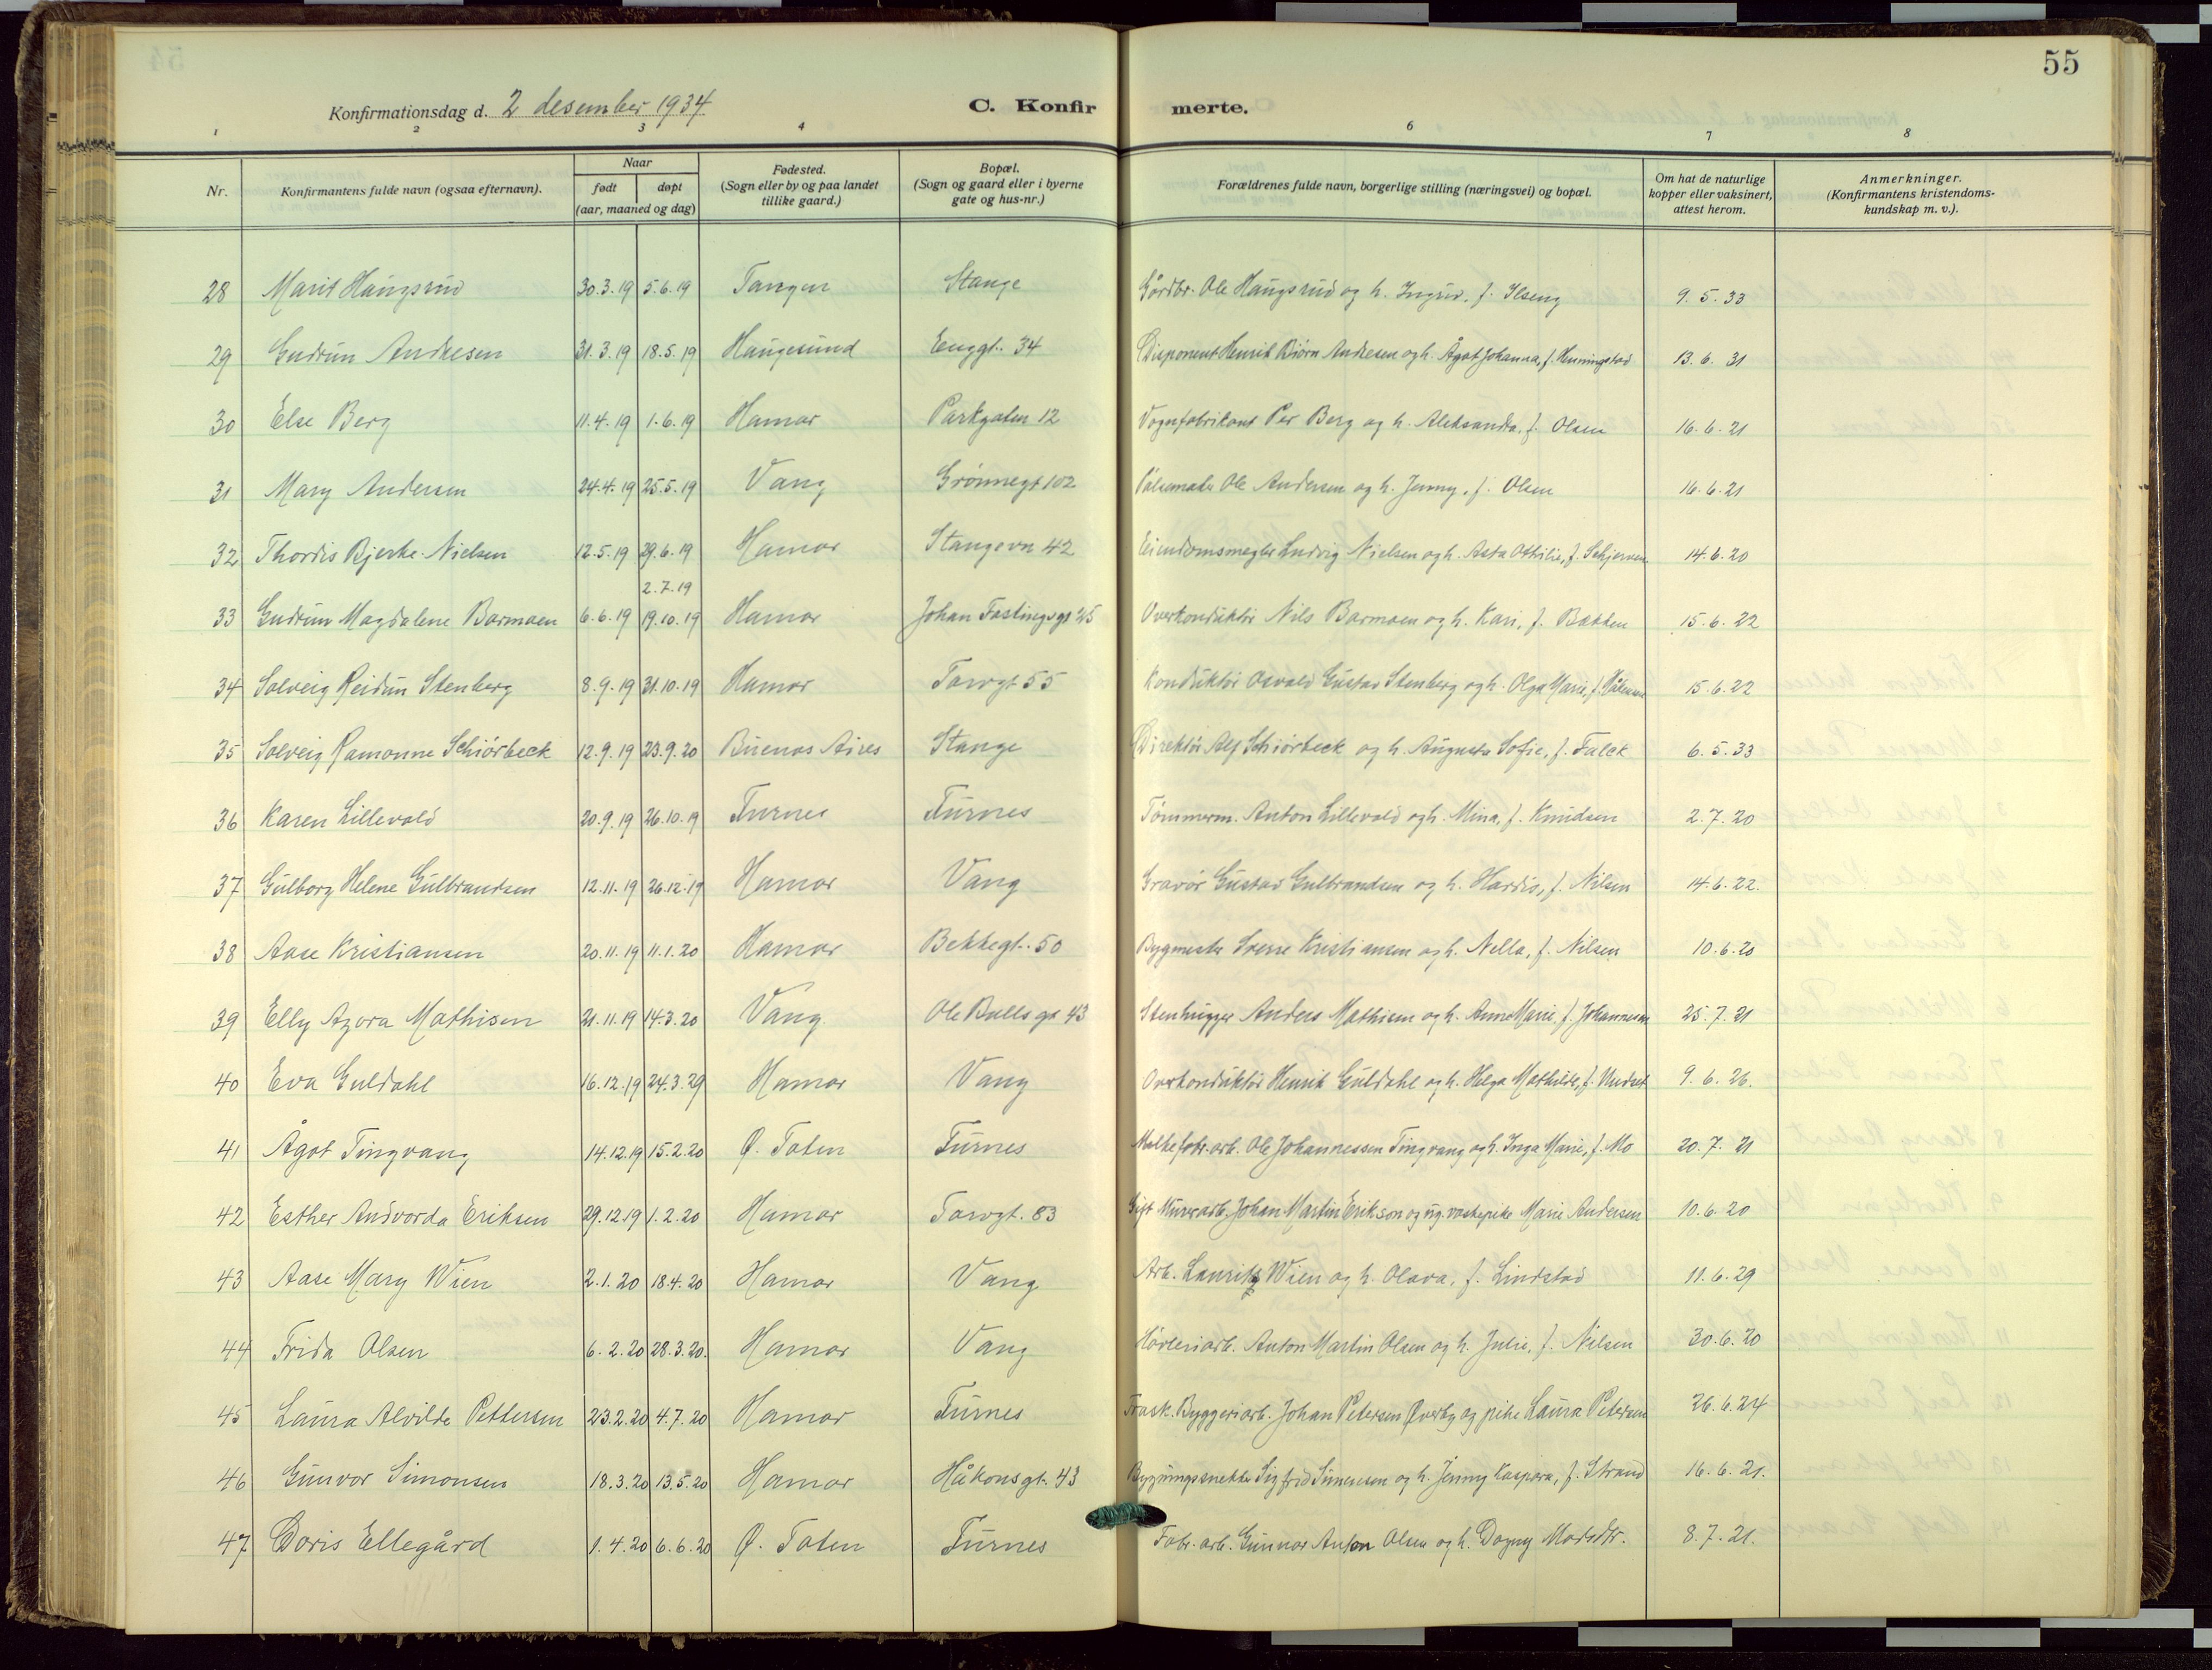 55
Konfirmationsdag d. 2 desember 1934
C. Konfirmerte.
1 2 3 4 6 7 8
Nr. | Konfirmantens fulde navn (ogsaa efternavn). | Naar født døpt (aar, maaned og dag) | Fødested. (Sogn eller by og paa landet tillike gaard.) | Bopæl. (Sogn og gaard eller i byerne gate og hus-nr.) | Forældrenes fulde navn, borgerlige stilling (næringsvei) og bopæl. | Om hat de naturlige kopper eller vaksinert, attest herom. | Anmerkninger. (Konfirmantens kristendomskundskap m. v.).
28 Marit Haugsrud 30.3.19 5.6.19 Tangen Stange Gårdbr. Ole Haugsrud og h. Ingrid, f. Ilseng 9.5.33
29 Gudrun Andresen 31.3.19 18.5.19 Haugesund Enggt. 34 Disponent Henrik Biørn Andresen og h. Ågot Johanna, f. Henningstad 13.6.31
30 Else Berg 11.4.19 1.6.19 Hamar Parkgaten 12 Vognfabrikant Per Berg og h. Aleksandra, f. Olsen 16.6.21
31 Mary Andersen 24.4.19 25.5.19 Vang Grønnegt 102 Pølsemaker Ole Andersen og h. Jenny, f. Olsen 16.6.21
32 Thordis Bjerke-Nielsen 12.5.19 29.6.19 Hamar Stangevn 42 Eiendomsmegler Ludvig Nielsen og h. Asta Othilie, f. Schjerven 14.6.20
2.7.19
33 Gudrun Magdalene Barmoen 6.6.19 19.10.19 Hamar Johan Fastingsgt 25 Overkonduktør Nils Barmoen og h. Kari, f. Bakken 15.6.22
34 Solveig Reidun Stenberg 8.9.19 31.10.19 Hamar Torvgt 55 Konduktør Osvald Gustav Stenberg og h. Olga Marie, f. Håkensen 15.6.22
35 Solveig Ramonne Schiørbeck 12.9.19 23.9.20 Buenos Aires Stange Direktør Alf Schiørbeck og h. Augusta Sofie, f. Falck 6.5.33
36 Karen Lillevold 20.9.19 26.10.19 Furnes Furnes Tømmerm. Anton Lillevold og h. Mina, f. Knudsen 2.7.20
37 Gulborg Helene Gulbrandsen 12.11.19 26.12.19 Hamar Vang Gravør Gustav Gulbrandsen og h. Hardis, f. Nilsen 14.6.22.
38 Aase Kristiansen 20.11.19 11.1.20 Hamar Bekkegt. 50 Bygmester Sverre Kristiansen og h. Nella, f. Nilsen 10.6.20
39 Elly Azora Mathisen 21.11.19 14.3.20 Vang Ole Bulls gt 43 Stenhugger Anders Mathisen og h. Anne Marie, f. Johannesen 25.7.21
40 Eva Guldahl 16.12.19 24.3.29 Hamar Vang Overkonduktør Henrik Guldahl og h. Helga Mathilde, f. Undset 9.6.26.
41 Ågot Tingvang 14.12.19 15.2.20 Ø. Toten Furnes Melkefabr.arb. Ole Johannessen Tingvang og h. Inga Marie, f. Mo 20.7.21
42 Esther Andvorda Eriksen 29.12.19 1.2.20 Hamar Torvgt. 83 Gift Murerarb. Johan Martin Erikson og ug. vaskepike Marie Andersen 10.6.20
43 Aase Mary Wien 2.1.20 18.4.20 Hamar Vang Arb. Lauritz Wien og h. Olava, f. Lindstad 11.6.29
44 Frida Olsen 6.2.20 28.3.20. Hamar Vang Høvleriarb. Anton Martin Olsen og h. Julie, f. Nilsen 30.6.20
45 Laura Alvilde Pettersen 23.2.20 4.7.20 Hamar Furnes Frask. Byggeriarb. Johan Petersen Øverby og pike Laura Petersen 26.6.24
46 Gunvor Simonsen 18.3.20 13.5.20 Hamar Håkonsgt. 43 Bygningssnekker Sigfrid Simensen og h. Jenny Kaspara, f. Strand 16.6.21.
47 Doris Ellegård 1.4.20 6.6.20 Ø. Toten Furnes Fabr.arb. Gunnar Anton Olsen og h. Dagny Madsdtr. 8.7.21.